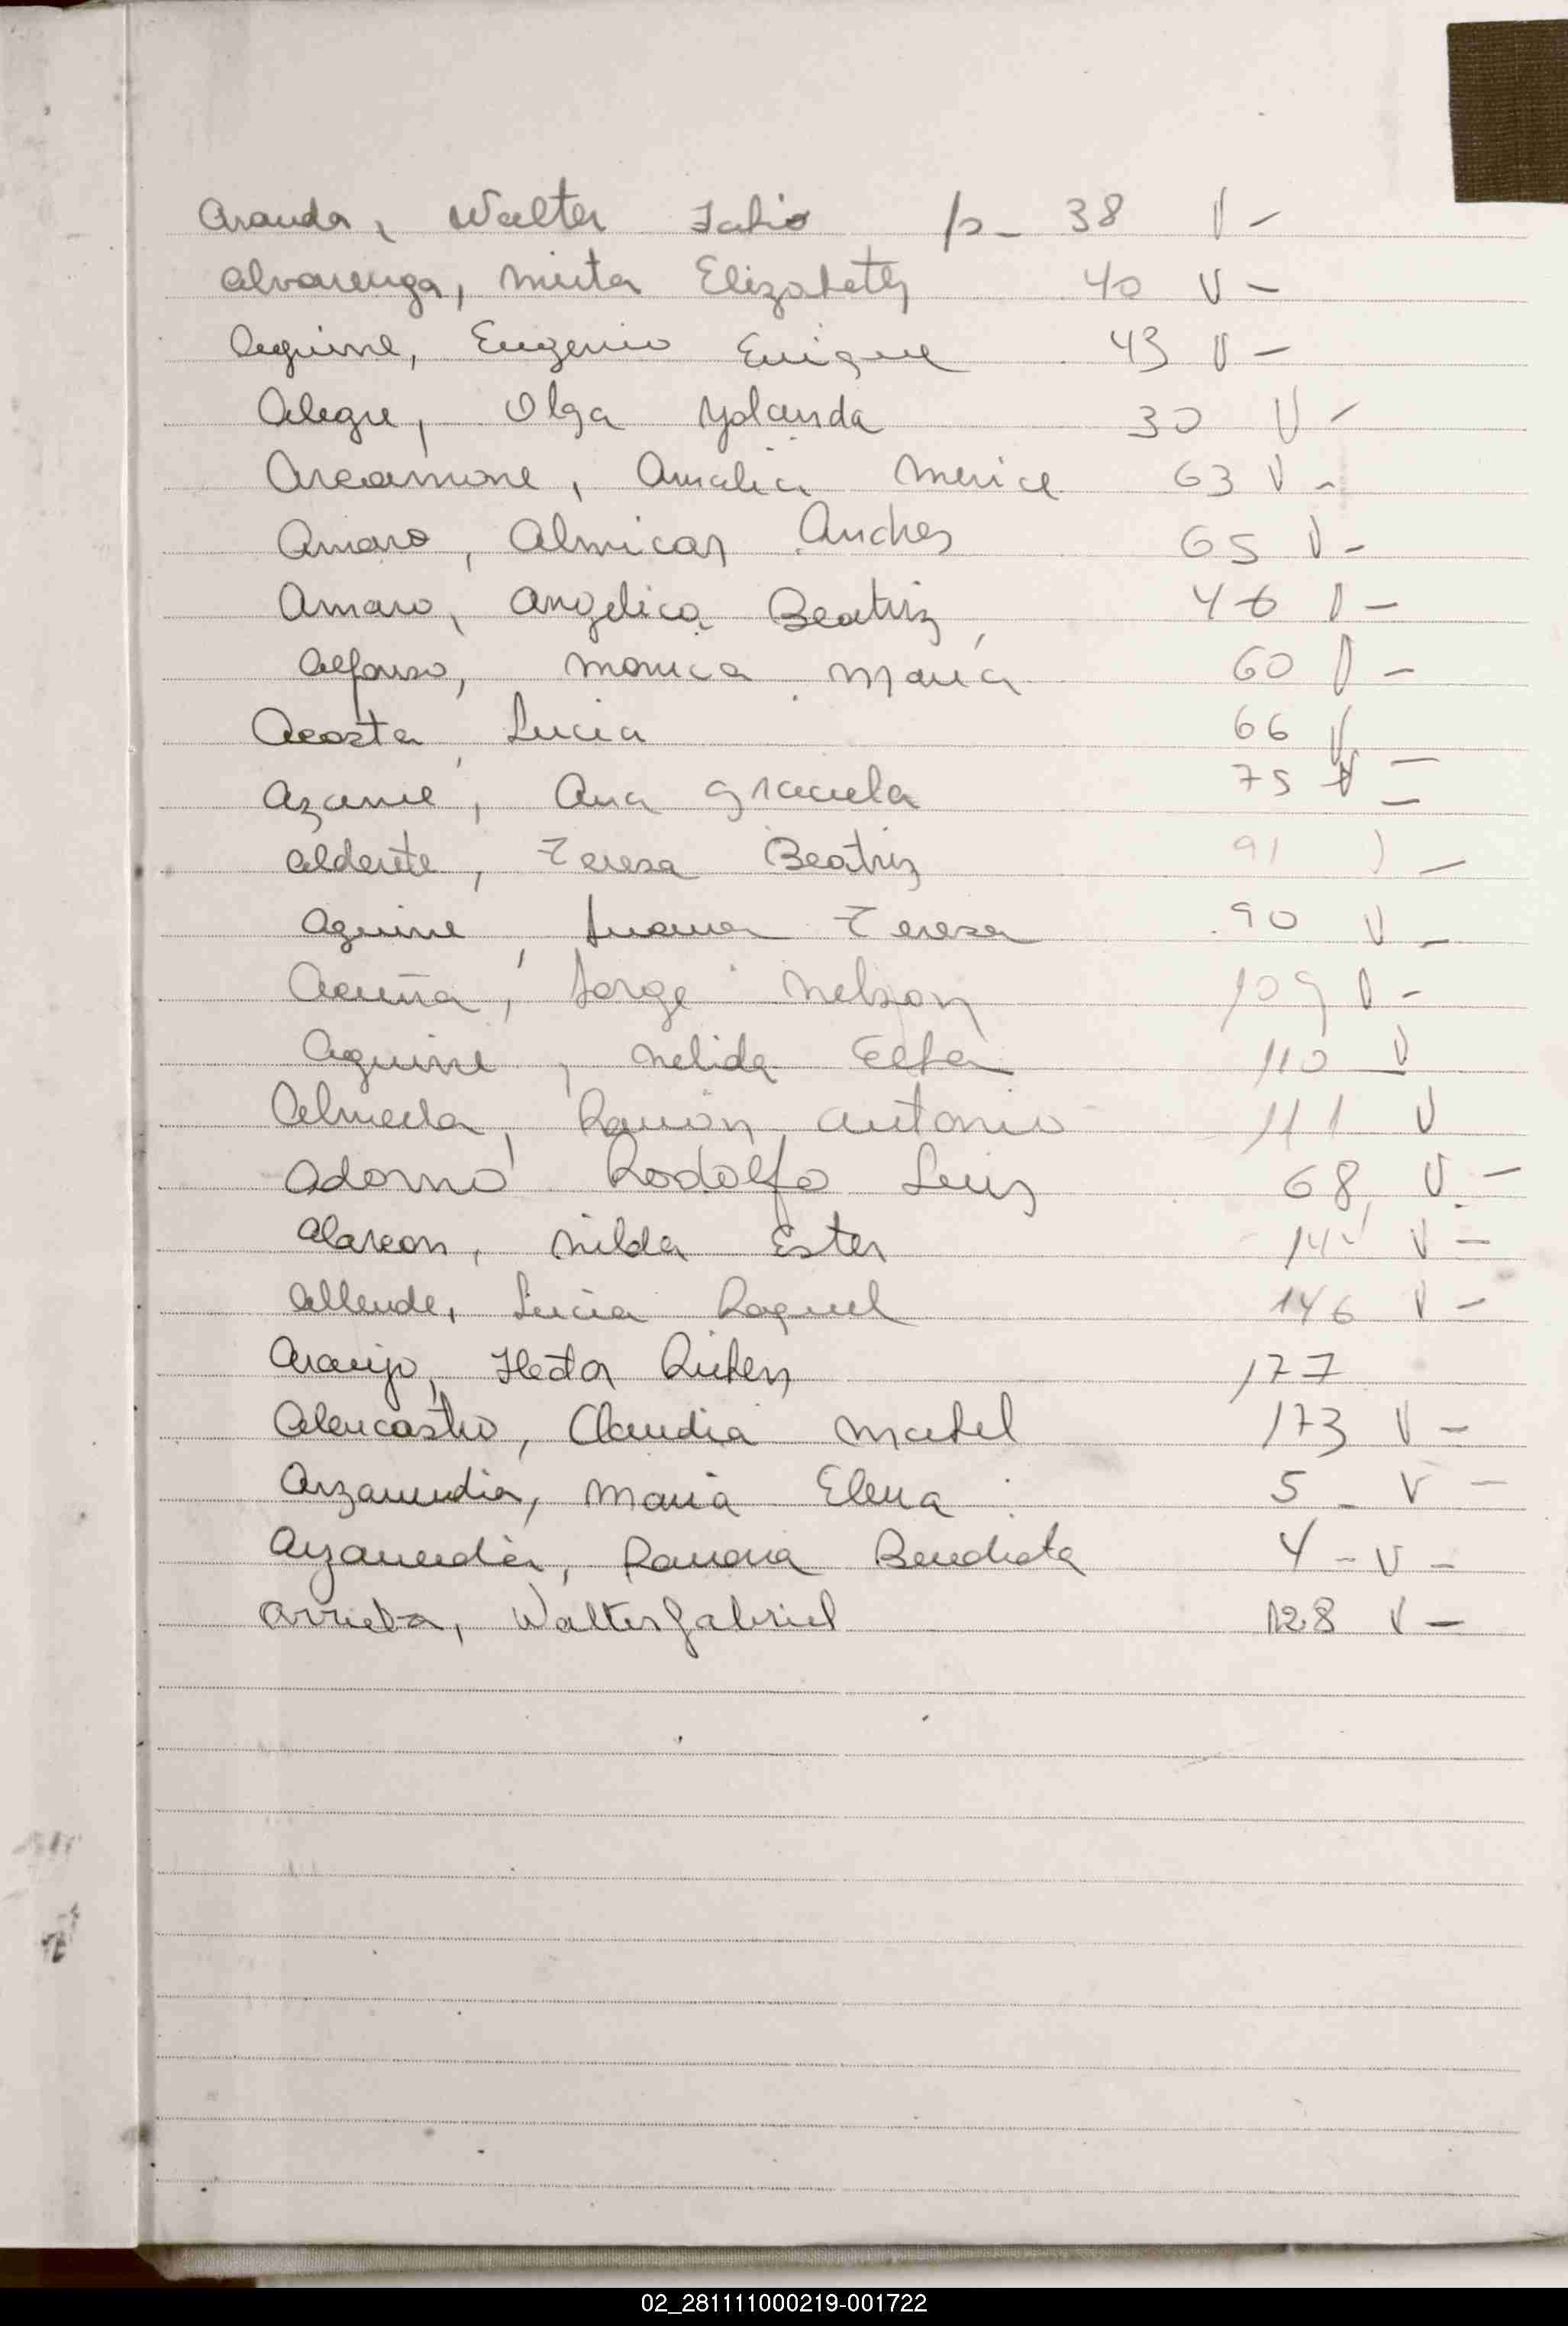 Aranda, Walter Fabio p- 38 V -
Alvarenga, Mirta Elizabeth 40 V -
Aguirre, Eugenio Enrique 43 V -
Alegre, Olga Yolanda 30 V -
Amalia 63 V -
Amaro, Almicar Andres 65 V -
Amaro, Angelica Beatriz, 46 V -
Alfonso, Monica Maria 60 V -
Acosta, Lucia 66 V -
Ana Graciela 75 V -
Alderete, Teresa Beatriz 91 V -
Aguirre, Juana Teresa 90 V -
Acuña, Jorge Nelson 109 V -
Aguirre, Nelida Elba 110 V
Almeda, Ramón Antonio 111 V
Adorno Rodolfo Luis 68 V -
Alarcon, Nilda Ester V -
Allende, Lucia Raquel 146 V -
Araujo, Hector Ruben 177
Alencastro, Claudia Mabel 173 V -
Arzamendia, Maria Elena 5 - V -
Ayamendia, Ramona 4 - V -
Arrieta, Walter Gabriel 128 V -
02_281111000219-001722